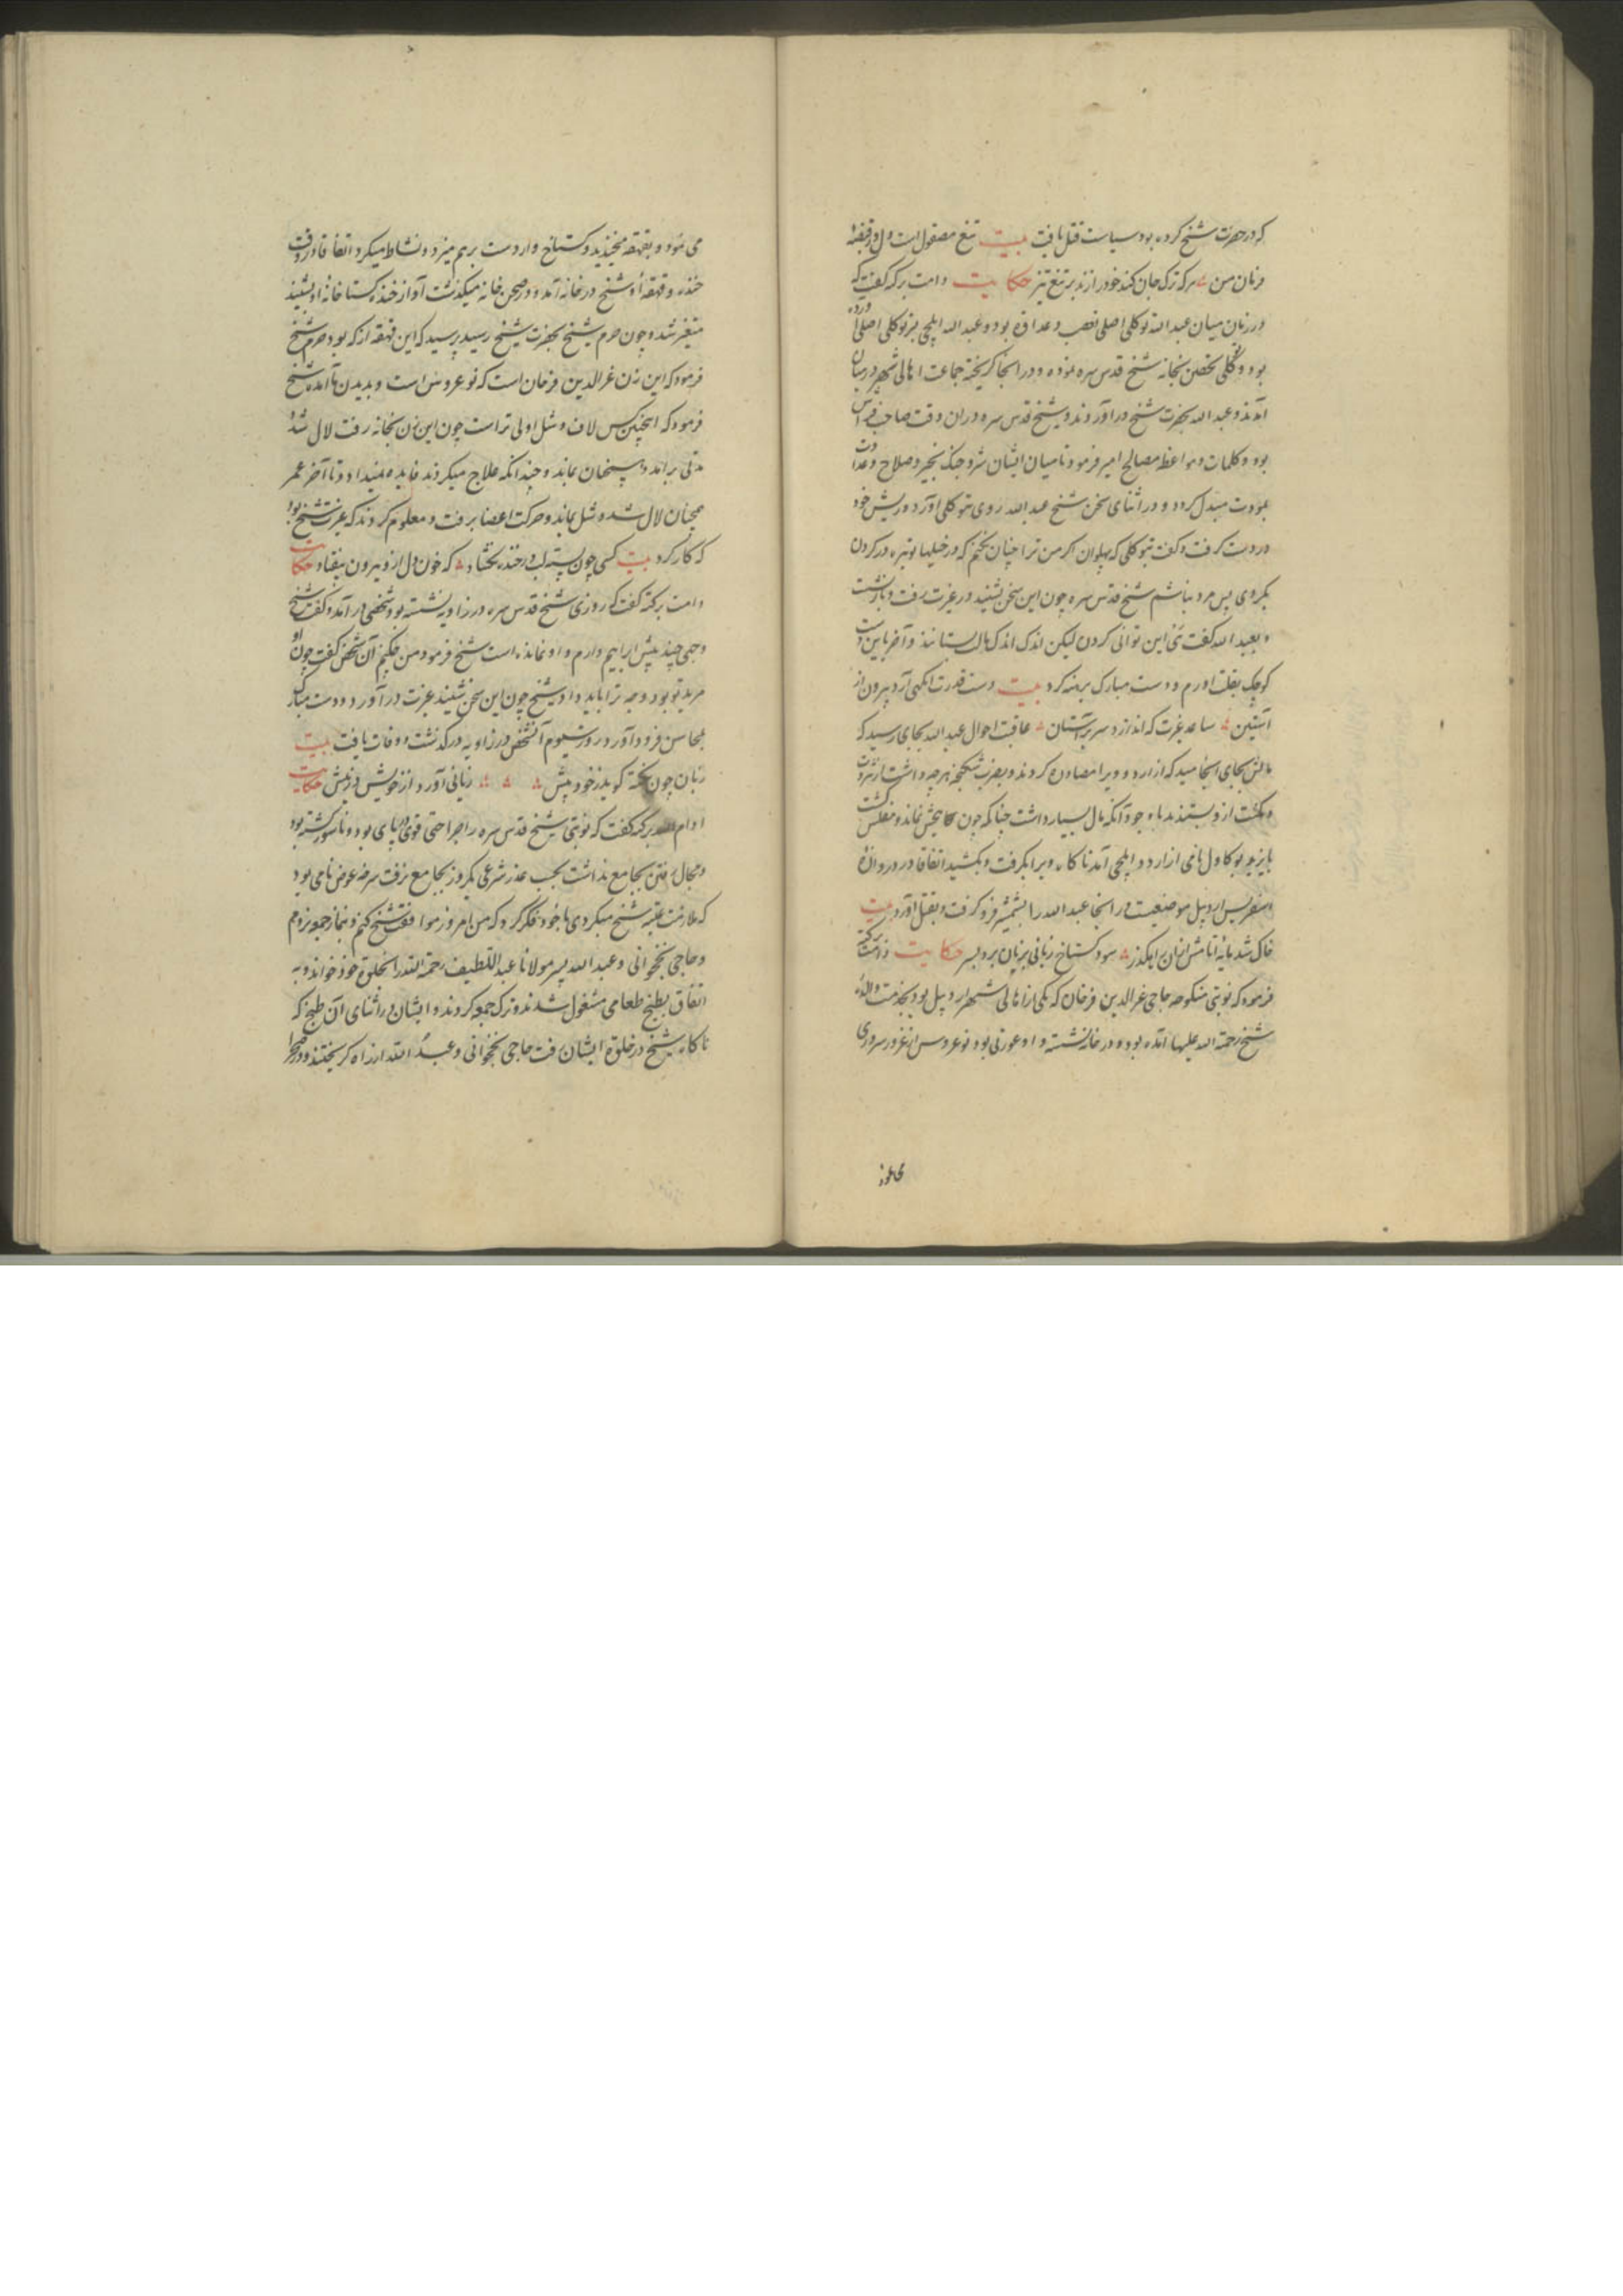 که در حضرت شیخ کرده بود سیاست قتل یافت بیت تیغ مصقول است دل در قبضه
فرمان من ه هرکه ترک جان کند خود را زند بر تیغ تیز حکایت دامت برکته گفت که
در زمان میان عبدالله توکلی اصلی تعصب و عداوة بود و عبدالله ایلچی بر توکلی اصلی آورده
بود و توکلی تحصن بخانه شیخ قدس سره نموده و در انجا گریخته جماعت اهالی شهر در میان
آمدند و عبدالله بحضرت شیخ در آوردند و شیخ قدس سره در ان وقت صاحب فراش
بود و کلمات و مواعظ مصالح امیز فرمود تا میان ایشان شر و جنگ بخیر و صلاح و عداوت
بمودت مبدل کردد و در اثنای سخن شیخ عبدالله روی بتوکلی آورد و ریش خود
در دست گرفت و گفت بتوکلی که پهلوان اگر من ترا چنان نکنم که در خیلها توبره در کردن
بگردی پس مرد نباشم شیخ قدس سره چون این سخن بشنید در غیرت رفت و باز نشست
و بعبدالله گفت نی این توانی کردن لیکن اندک اندک مال بستانند و آخر باین دست
کوچک بقتلت اورم و دست مبارک برهنه کرد بیت دست قدرت انکهی آرد بیرون از
آستین ه ساعد غیرت که اندازد سر بر آستان ه عاقبت احوال عبدالله بجای رسید که
مالش بجای انجامید که از اردو ویرا مصادره کردند و بضرب شکنجه هر چه داشت از ثروت
و مکنت ازو بستدند با وجود آنکه مال بسیار داشت چنانکه چون هیچش نماند و مفلس گشت
بایزید بوکاول نامی از اردو ایلچی آمد ناکاه ویرا بگرفت و بکشید اتفاقا در دروازه
اسفریس اردبیل موضعیست در انجا عبدالله را بشمشیر فرو گرفت و بقتل آورد بیت
خاک شد مایه انا مش ازان رهگذر ه سود گستاخ زبانی بزبان برد بسر حکایت دامت برکته
فرمود که نوبتی منکوحه حاجی عزالدین فرخان که یکی از اهالی شهر اردبیل بود بخدمت والده
شیخ رحمة الله علیها آمده بود و در خانه نشسته و او عورتی بود نوعروس از غرور سروری
می نمود
می نمود و بقهقهه میخندید و گستاخ وار دست بر هم میزد و نشاط میکرد اتفاقا در وقت
خنده و قهقهه او شیخ در خانه آمد و در صحن خانه میگذشت آواز خنده گستاخانه او بشنید
متغیر شد و چون حرم شیخ بحضرت شیخ رسید پرسید که این قهقهه از که بود حرم شیخ
فرمود که این زن عزالدین فرخان است که نوعروس است و بدیدن ما آمده شیخ
فرمود که اینچنین کس لال و شل اولی تر است چون این زن بخانه رفت لال شد
مدتی برامد و بی سخن بماند و چندانکه علاج میکردند فایده نمیداد و تا آخر عمر
همچنان لال شده و شل بماند و حرکت اعضا برفت و معلوم کردند که غیرت شیخ بود
که کار کرد بیت کسی چون پسته لب در خنده نگشاد ه که خون دل ازو بیرون نیفتاد حکایت
دامت برکته گفت که روزی شیخ قدس سره در زاویه نشسته بود شخصی در آمد و گفت شیخ
وجهی چند پیش ابراهیم دارم و او نمانده است شیخ فرمود من چکنم آن شخص گفت چون او
مرید تو بود وجه ترا باید داد شیخ چون این سخن بشنید غیرت در آورد و دست مبارک
بمحاسن فرود آورد روز سیوم آن شخص در زاویه درگذشت و وفات یافت بیت
زبان چون نکته گوید ز خود بیش ه ه ه زیانی آورد از خویش در پیش حکایت
ادام الله برکته گفت که نوبتی شیخ قدس سره را جراحتی قوی در پای بود و ناسور گشته بود
و مجال رفتن بجامع نداشت بحسب عذر شرعی یکروز بجامع نرفت سرخه عوض نامی بود
که ملازمت عتبه شیخ میکردی با خود فکر کرد که من امروز موافقت شیخ کنم و بنماز جمعه نروم
و حاجی نخجوانی و عبدالله پسر مولانا عبداللطیف رحمة الله را بخلوة خود خواند و به
اتفاق بطبخ طعامی مشغول شدند و ترک جمعه کردند و ایشان در اثنای آن طبخ که
ناکاه شیخ در خلوة ایشان رفت حاجی نخجوانی و عبدالله از راه گریختند و در صحرا